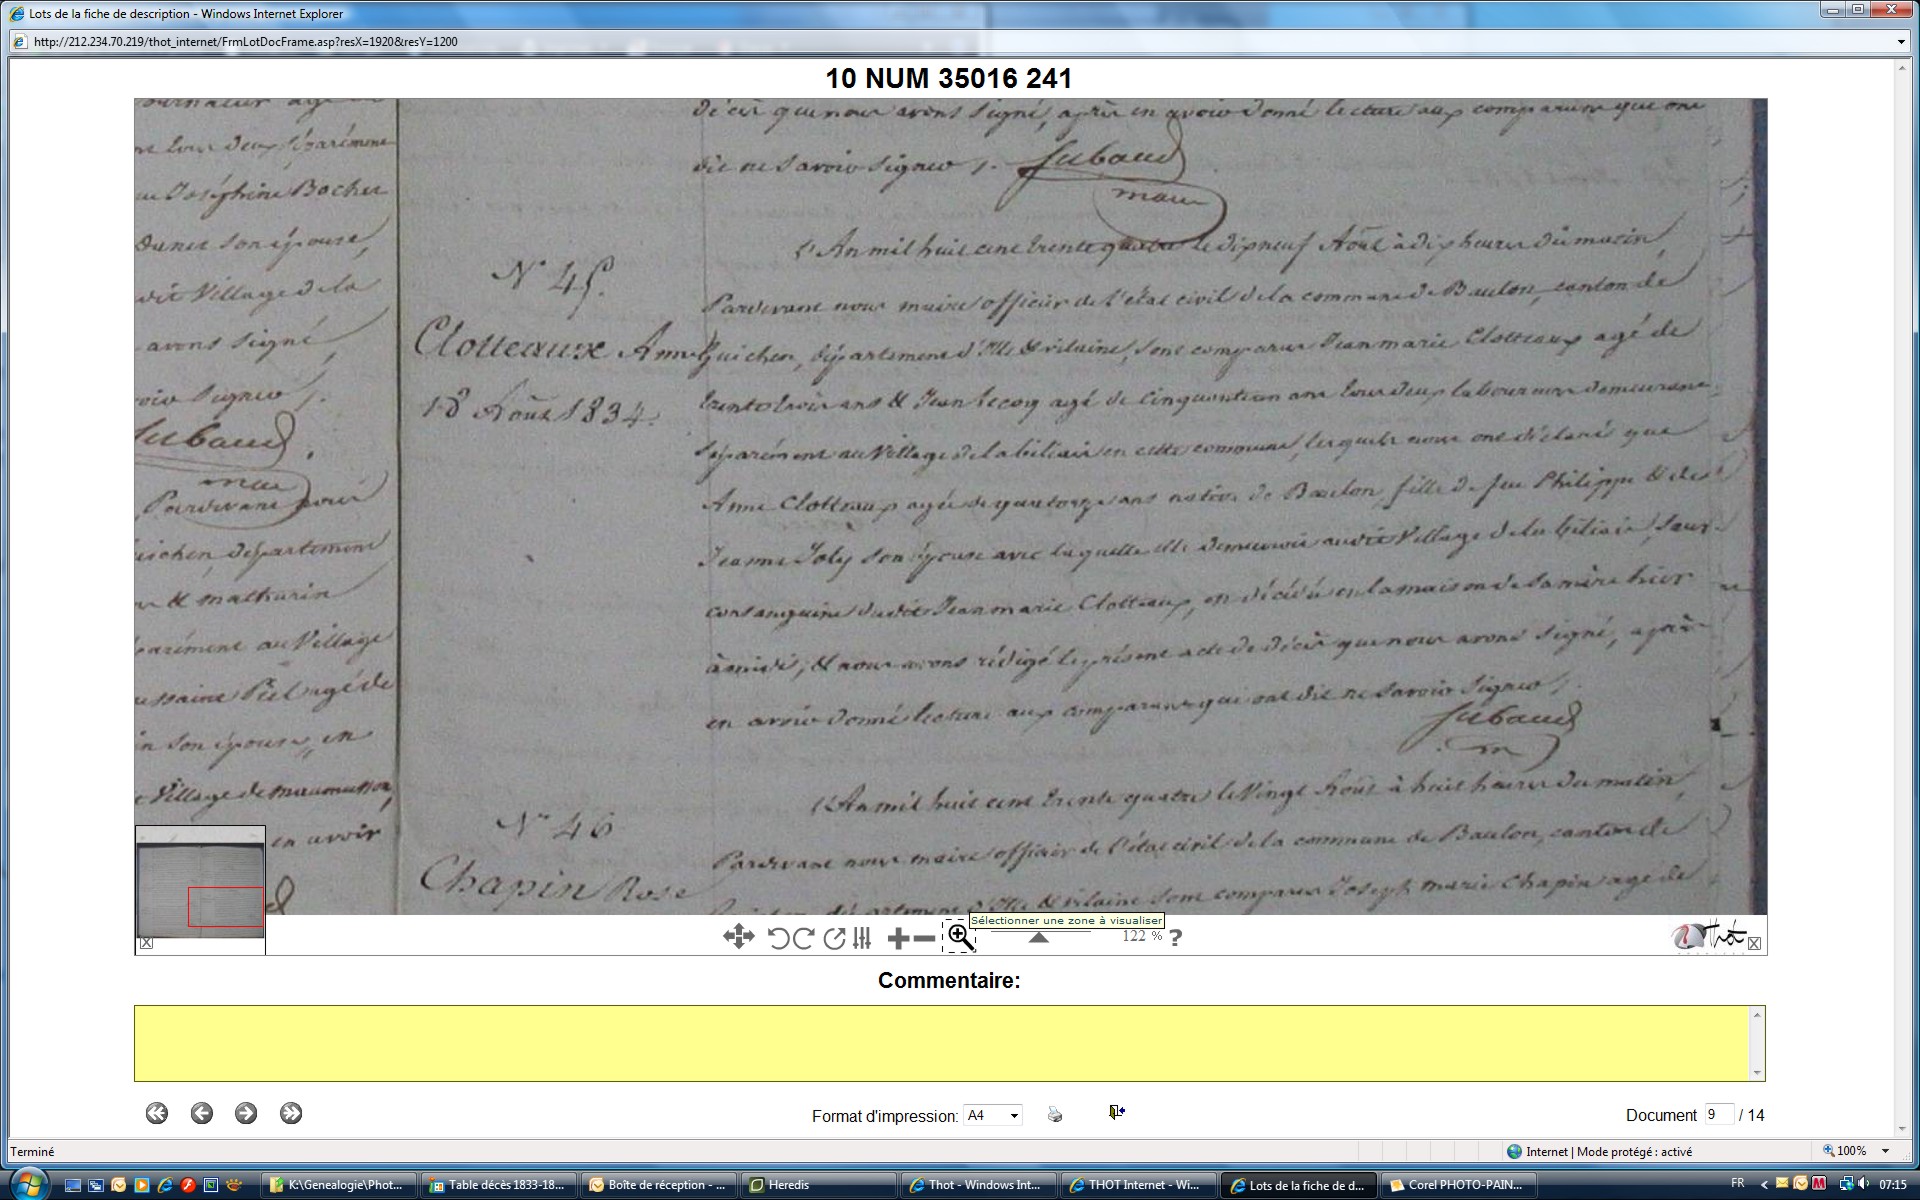 Lots de la fiche de description - Windows Internet Explorer
http://212.234.70.219/thot_internet/FrmLotDocFrame.asp?resX=1920&resY=1200
10 NUM 35016 241
décès que nous avons signé, après en avoir donné lecture aux comparans qui ont
dit ne savoir signer /. Jubaud
maire
ne tous deux séparément
Joséphine Bocher
son épouse,
dit Village de la
avons signé
voir signer /.
Jubaud
maire
Pardevant nous
uichen, département
& mathurin
parément au Village
Piel agé de
son épouse, en
Village de
en avoir
N° 45.
Clotteaux Anne
18 Août 1834.
L'An mil huit cent trente quatre le dix neuf Août à dix heures du matin
Pardevant nous maire officier de l'état civil de la commune de Baulon, canton de
Guichen, département d'Ille & vilaine, sont comparus Jean marie Clotteaux agé de
trente trois ans & Jean Lecoq agé de cinquante un ans tous deux laboureurs demeurans
séparément au Village de la biliais en cette commune, lesquels nous ont déclaré que
Anne Clotteaux agée de quatorze ans native de Baulon, fille de feu Philippe & de
Jeanne Joly son épouse avec laquelle elle demeurait audit Village de la biliais, sœur
consanguine dudit Jean marie Clotteaux, est décédée en la maison de sa mère hier
à midi, & nous avons rédigé le présent acte de décès que nous avons signé, après
en avoir donné lecture aux comparans qui ont dit ne savoir signer /.
Jubaud
m
N° 46
Chapin Rose
L'An mil huit cent trente quatre le Vingt Août à huit heures du matin,
Pardevant nous maire officier de l'état civil de la commune de Baulon, canton de
Guichen, département d'Ille & vilaine sont comparus Joseph marie Chapin agé de
Sélectionner une zone à visualiser
122 %
?
Thot
Commentaire:
Format d'impression: A4
Document 9 / 14
Terminé
Internet | Mode protégé : activé
100%
K:\Genealogie\Phot...
Table décès 1833-18...
Boîte de réception - ...
Heredis
Thot - Windows Int...
THOT Internet - Wi...
Lots de la fiche de d...
Corel PHOTO-PAIN...
FR
07:15